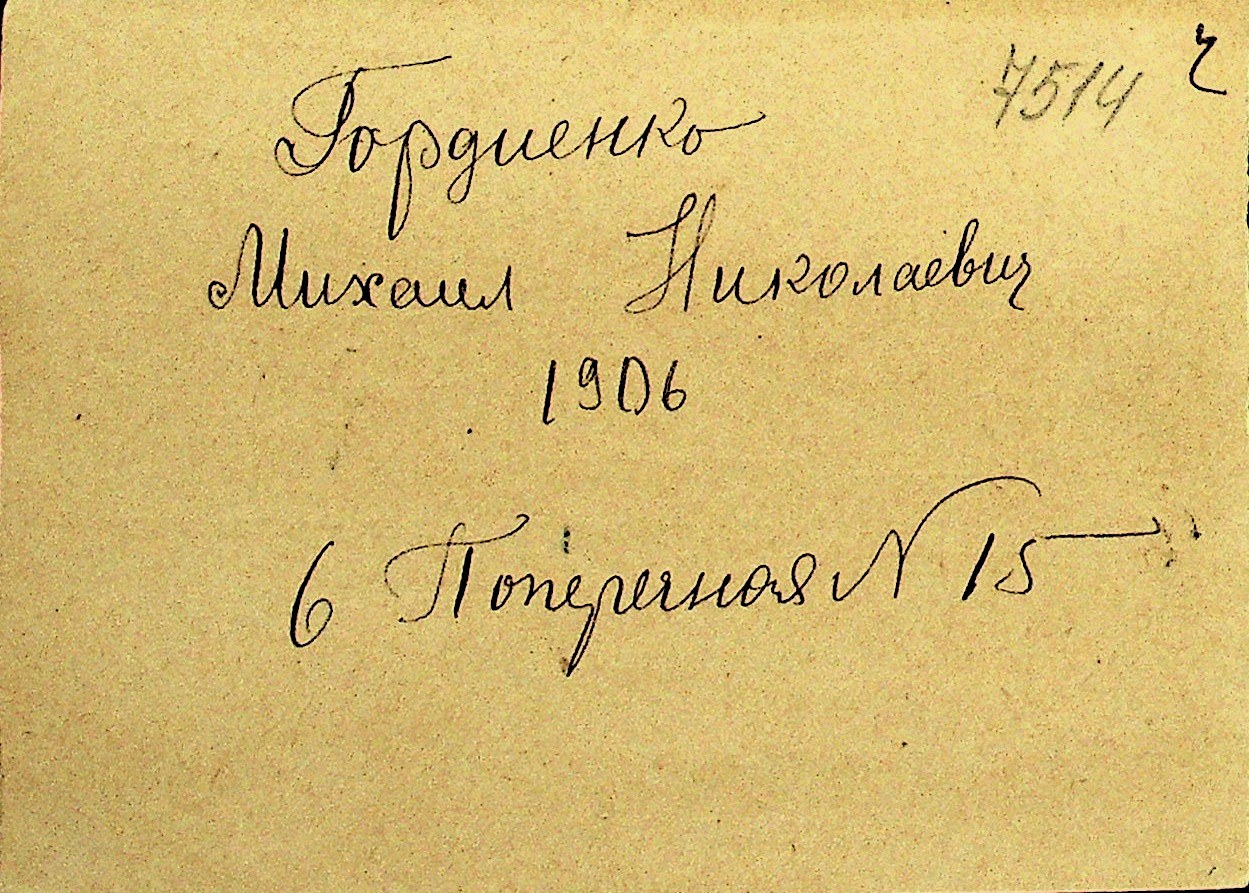 7514 ч
Гордиенко
Михаил Николаевич
1906
6 Поперечная N 15